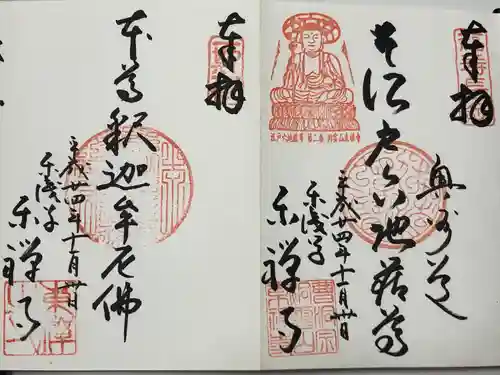 奉拝
奥州道
江戸六地蔵尊
平成廿四年十一月卅日
東浅草
東禅寺
江戸六地蔵尊 第二番
奉拝
本尊釈迦牟尼佛
平成廿四年十一月卅日
東浅草
東禅寺